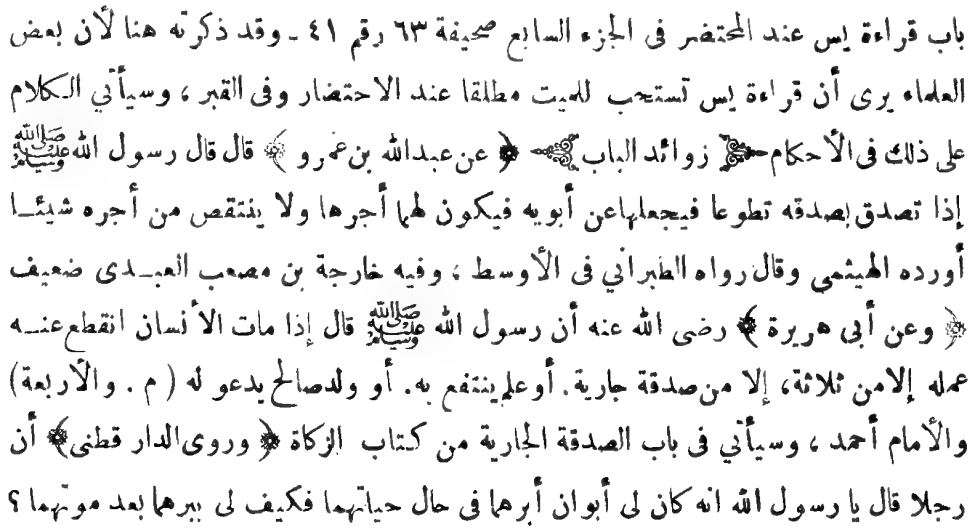 باب قراءة يس عند المحتضر فى الجزء السابع صحيفة ٦٣ رقم ٤١ ـ وقد ذكرته هنا لأن بعض
العلماء يرى أن قراءة يس تستحب للميت مطلقا عند الاحتضار وفى القبر ، وسيأتي الكلام
على ذلك فى الأحكام ﴿ زوائد الباب ﴾ ﴿ عن عبدالله بن عمرو ﴾ قال قال رسول الله ﷺ
إذا تصدق بصدقه تطوعا فيجعلها عن أبويه فيكون لهما أجرها ولا ينتقص من أجره شيئا
أورده الهيثمي وقال رواه الطبراني فى الأوسط ، وفيه خارجة بن مصعب العبدى ضعيف
﴿ وعن أبى هريرة ﴾ رضى الله عنه أن رسول الله ﷺ قال إذا مات الأنسان انقطع عنه
عمله إلامن ثلاثة، إلا من صدقة جارية. أو علم ينتفع به. أو ولد صالح يدعو له ( م . والأربعة)
والأمام أحمد ، وسيأتي فى باب الصدقة الجارية من كتاب الزكاة ﴿ وروى الدار قطنى ﴾ أن
رجلا قال يا رسول الله انه كان لى أبوان أبرهما فى حال حياتهما فكيف لى ببرهما بعد موتهما ؟